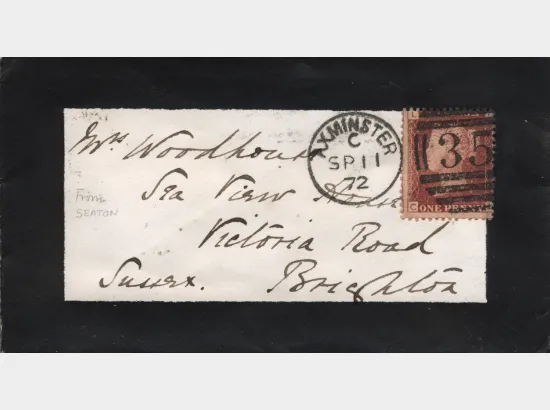 Mrs Woodhouse
Sea View House
Victoria Road
Brighton
Sussex.
From
SEATON
AXMINSTER
C
SP 11
72
35
C ONE PENNY